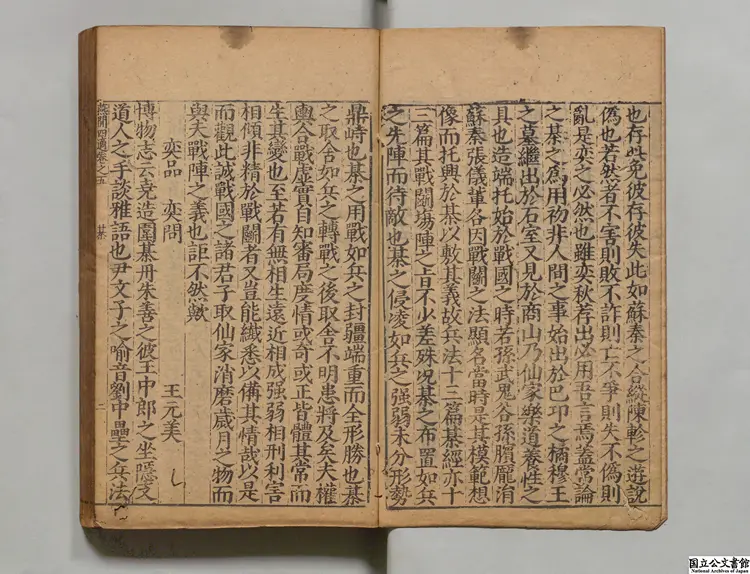 也存此免彼存彼失此如蘇秦之合縱陳軫之遊說
偽也若然者不害則敗不詐則亡不爭則失不偽則
亂是奕之必然也雖奕秋荐出必用吾言焉蓋嘗論
之棊之爲用初非人間之事始出於巴卭之橘穆王
之墓繼出於石室又見於商山乃仙家樂道養性之
具也造端托始於戰國之時若孫武鬼谷孫臏龐涓
蘇秦張儀軰各因戰鬬之法顯名當時是其模範想
像而托興於棊以敷其義故兵法十三篇棊經亦十
三篇其戰鬬塲陣之旨不少差殊况棊之布置如兵
之先陣而待敵也棊之侵凌如兵之強弱未分形勢
鼎峙也棊之用戰如兵之封疆端重而全形勝也棊
之取舍如兵之轉戰之後取舎不明患將及矣夫權
輿合戰虛實自知審局度情或奇或正皆體其常而
生其變也至若有無相生遠近相成强弱相刑利害
相傾非精於戰鬬者又豈能纖悉以備其情哉以是
而觀此誠戰國之諸君子取仙家消磨歲月之物而
與夫戰陣之義也詎不然歟
奕品 奕問 王元美
博物志云堯造圍棊丹朱善之彼王中郎之坐隱支
道人之手談雅語也尹文子之喻音劉中壘之兵法
卷之五 棊 二
国立公文書館
National Archives of Japan